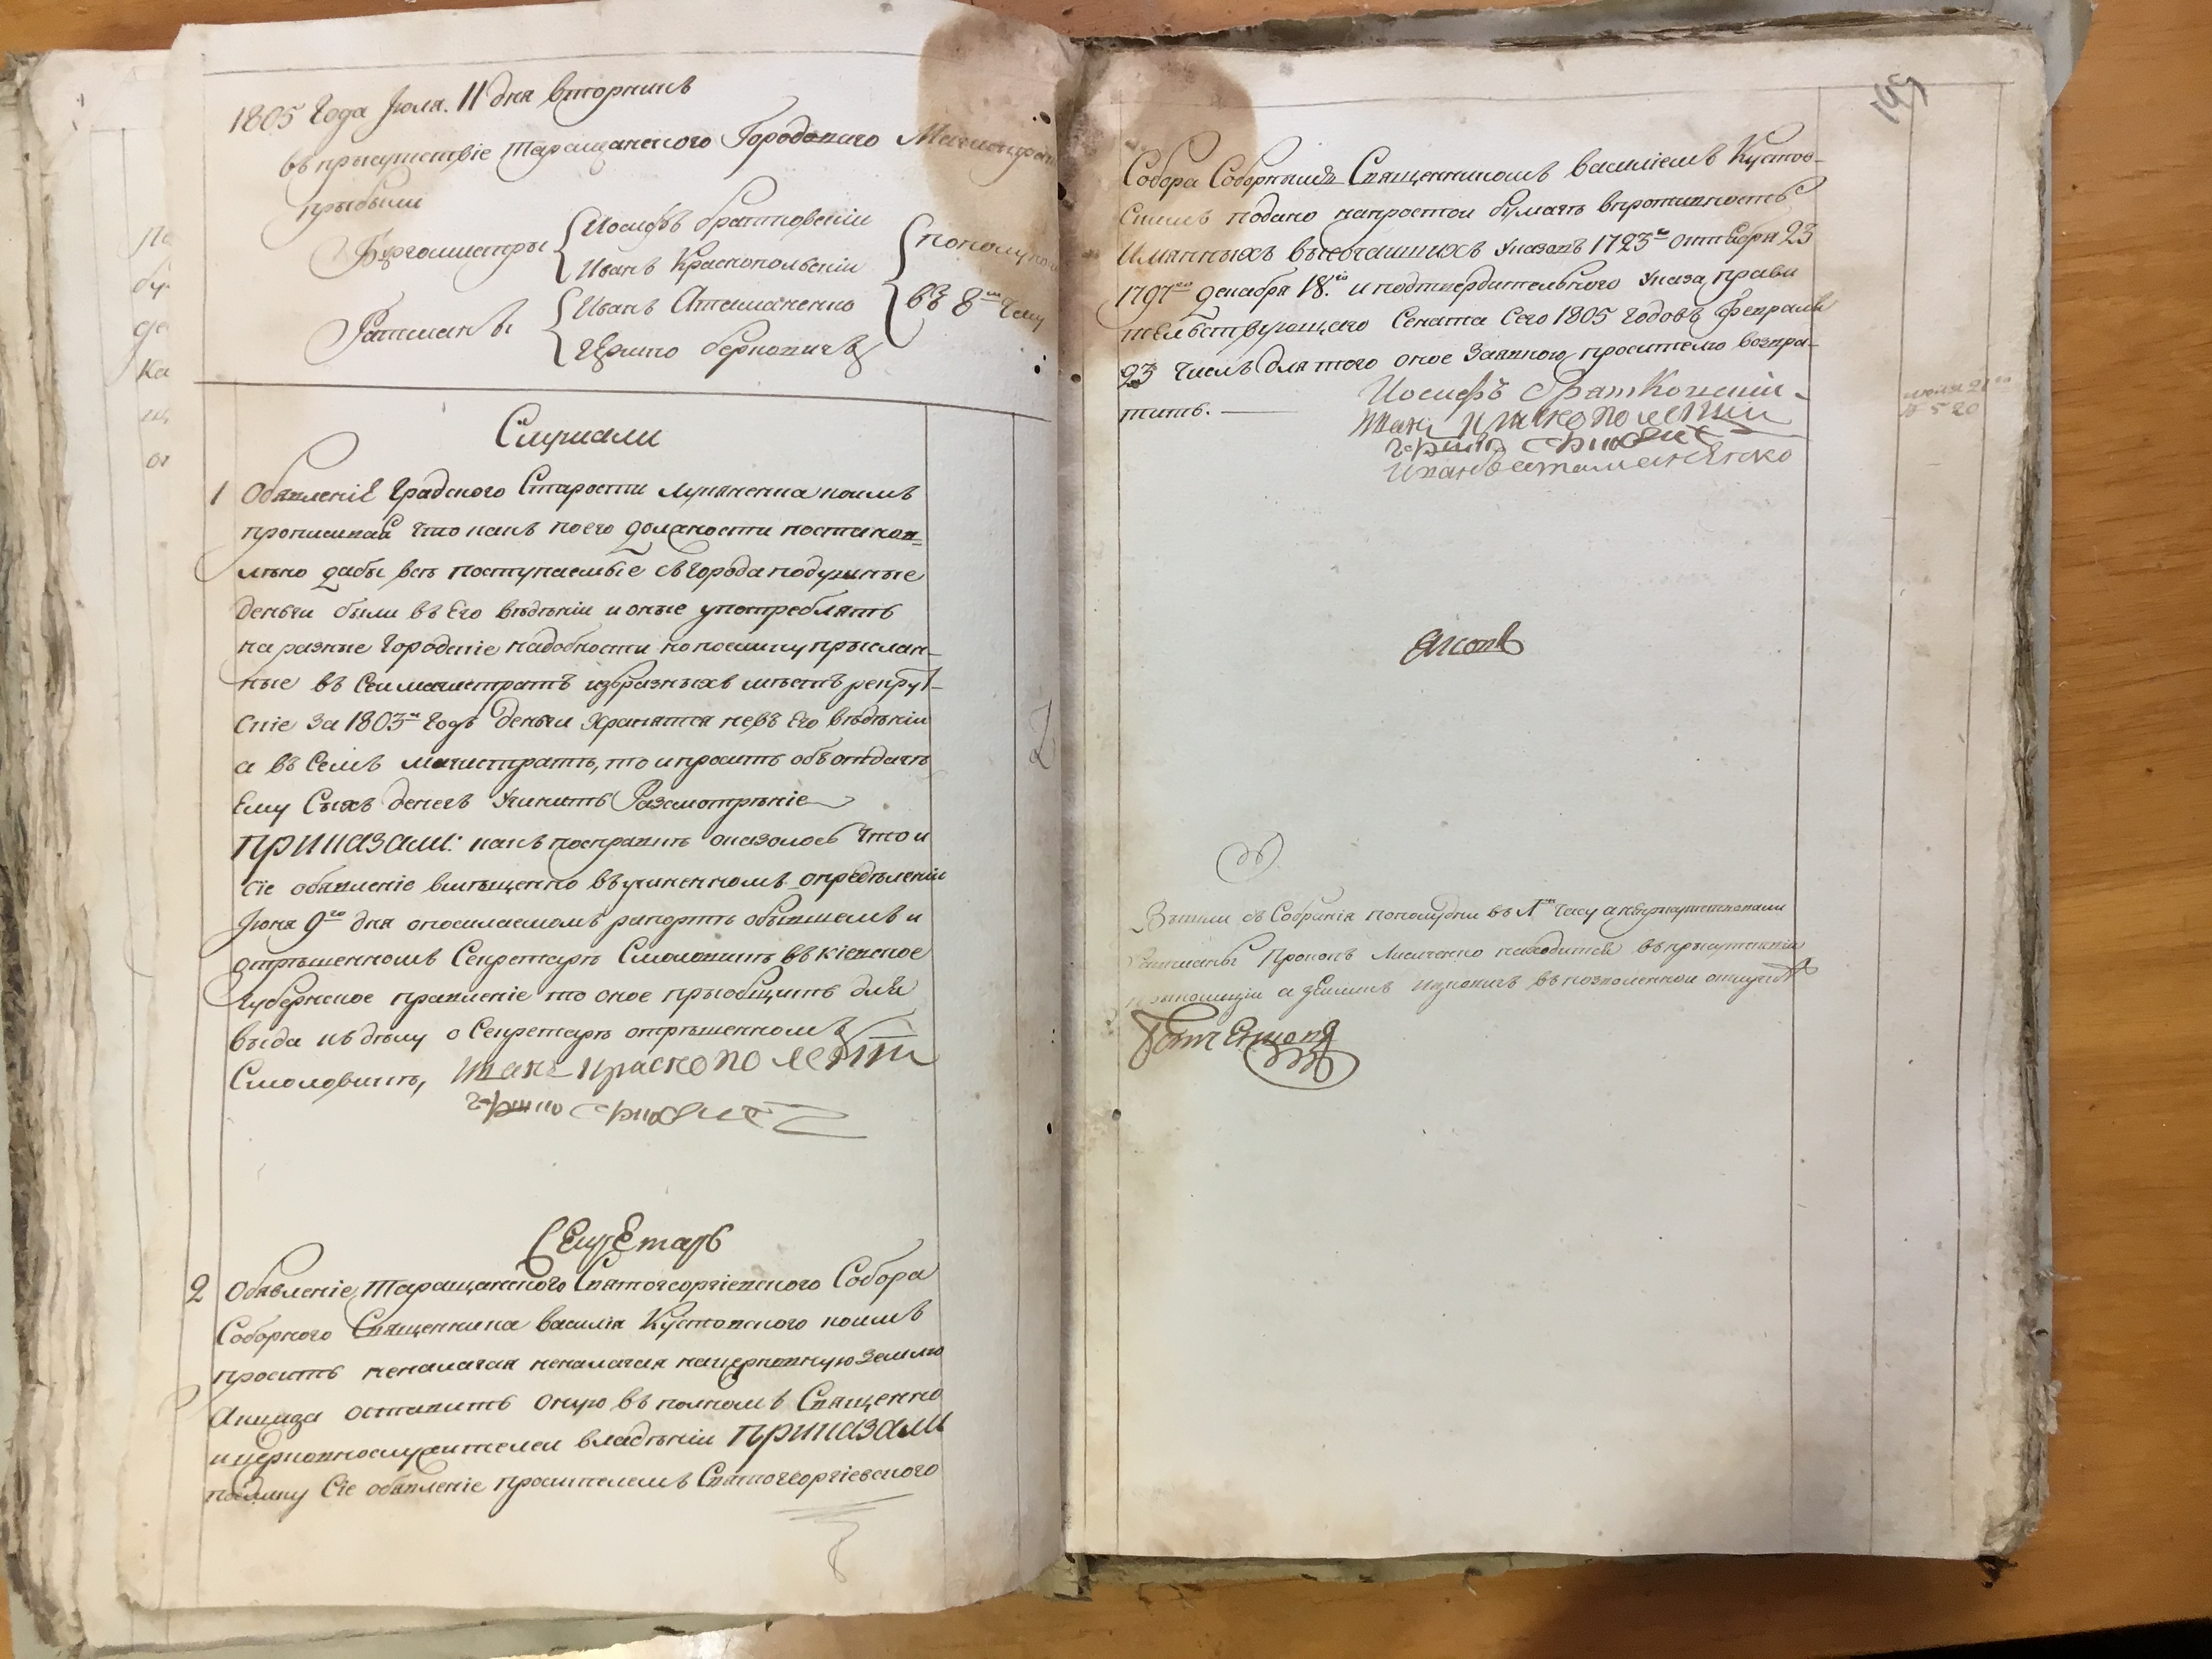 1805 Года Іюля. 11 дня вторникъ
въ присутствіе Таращанского Городового Магистрат
прибыли
Бургомистры Иосифъ братковскіи
Иванъ Краснопольскіи
пополуно
въ 8м часу
Ратманы Иванъ Атаманенко
Герцико берковичъ
Слушали
1 Обявленіе Градского Старости Лукяненка коимъ
прописывая что какъ по его должности постанов=
лено дабы всѣ поступаемые съ города подушные
деньги были въ Его вѣдѣніи и оные употреблять
на разные городскіе надобности но поелику прыслан-
ные въ Сеи магистратъ избразныхъ мѣстъ рекрут-
скіе за 1803й годъ деньги хранятся не въ Его вѣдѣніи
а въ Семъ магистратѣ, то и просить объ отдачѣ
Ему Сыхъ денегъ Учинить Разсмотрѣніе
Приказали: какъ по справкѣ оказалось что и
сіе обявленіе вмѣщенно въ учиненномъ опредѣленіи
Іюня 9го дня о посилаемомъ рапортѣ обывшемъ и
отрѣшенномъ Секретарѣ Смоловикѣ въ кіевское
Губернское правленіе то оное пріобщить для
выда къ дѣлу о Секретарѣ отрѣшенномъ
Смоловикѣ, Иван Краснополский
Секретарь
2 Обявленіе Таращанского Святогеоргіевского Собора
Соборного Священника василія Кустовского коимъ
просить ненапагая ненапагая нацерковную землю
Акциза оставить оную въ полномъ Священно
и церковнослужителеи владѣніи Приказали
поелику Сіе обявленіе просителемъ Святогеоргіевского
2
149
Собора Соборнымъ Священникомъ василіемъ Кустов-
скимъ подано напростои бумагѣ впротивность
Имянныхъ высочаишихъ Указовъ 1723го октября 23
1797го декабря 18.го и подтвердительного Указа прави
тельствующаго Сената Сего 1805 Годовъ Февраля
23 числъ для того оное Заявного просителю возвра-
тить. — Иосифъ Братковскіи
Иван Краснополский
Иванъ Атаманенко
июля 21го
№ 520
Вышли съ Собранія пополудни въ 1м часу а въприсутствованіи
Ратманы Прокопъ Лисиченко находится въ прысутствіи
а въ позволенной отлучкѣ